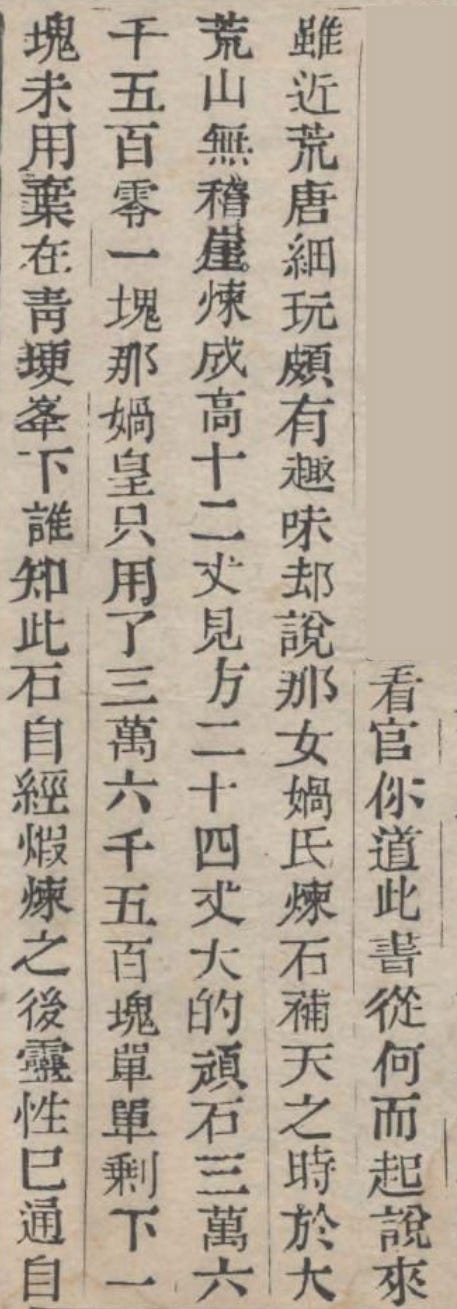 看官你道此書從何而起說來
雖近荒唐細玩頗有趣味却說那女媧氏煉石補天之時於大
荒山無稽崖煉成高十二丈見方二十四丈大的頑石三萬六
千五百零一塊那媧皇只用了三萬六千五百塊單單剩下一
塊未用棄在青埂峯下誰知此石自經煆煉之後靈性已通自